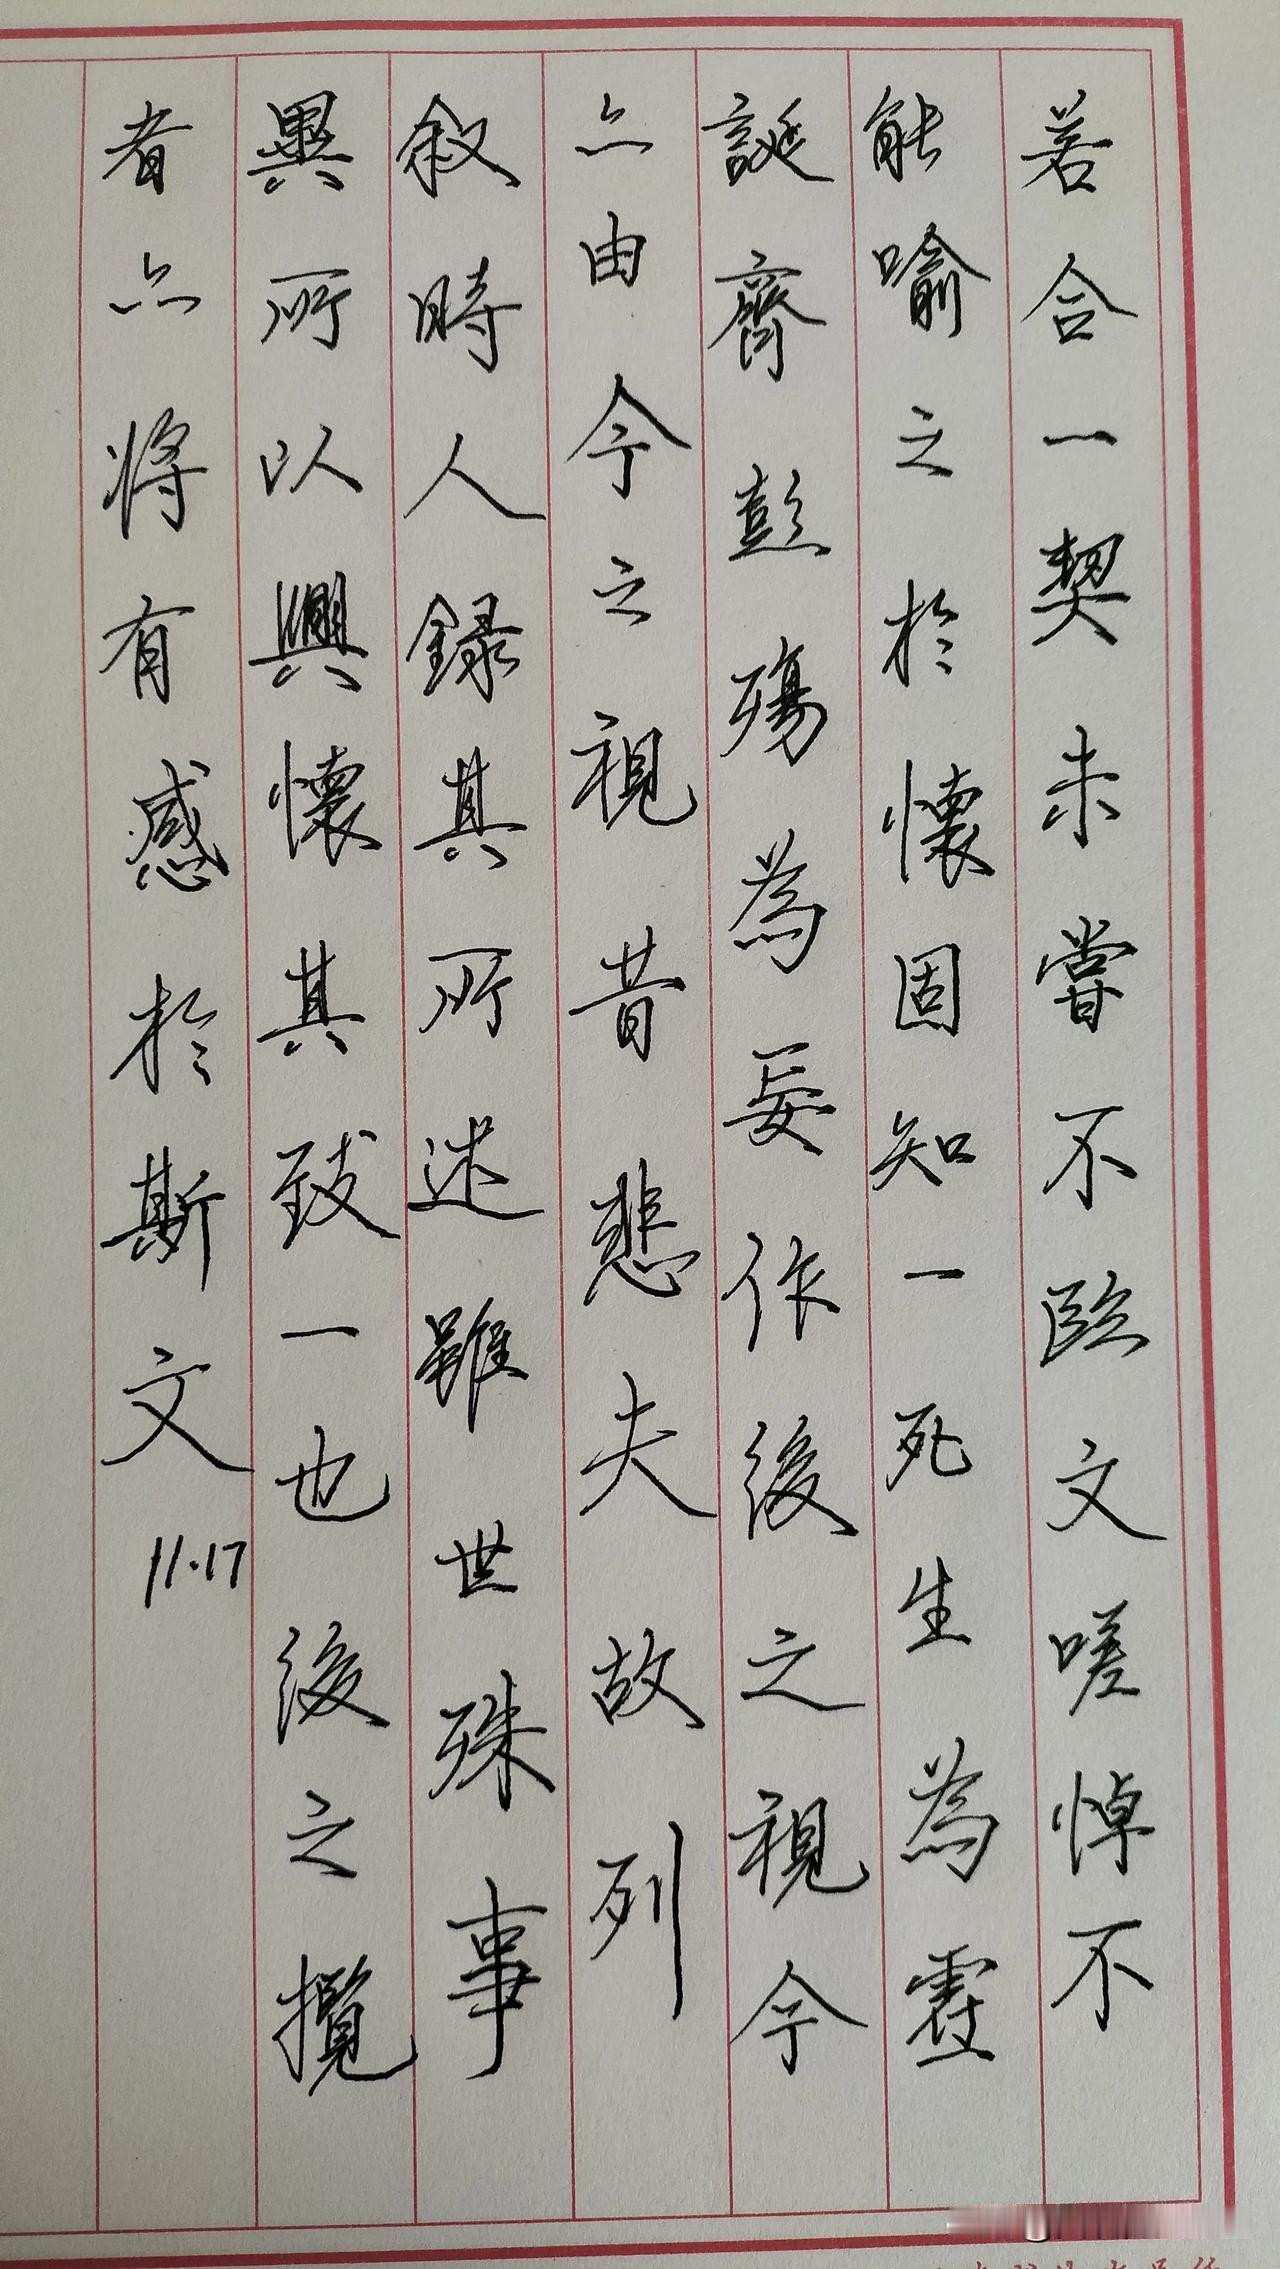 若合一契未嘗不臨文嗟悼不
能喻之於懷固知一死生為虛
誕齊彭殤為妄作後之視今
亦由今之視昔悲夫故列
叙時人錄其所述雖世殊事
異所以興懷其致一也後之攬
者亦將有感於斯文
11.17